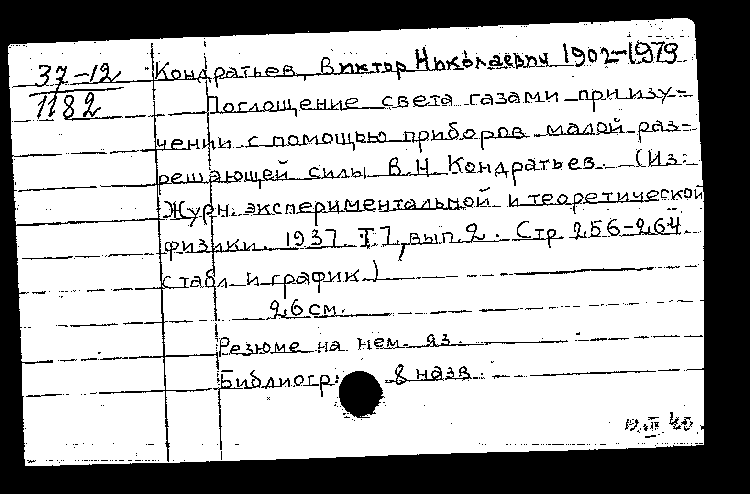 37-12
1182
Кондратьев, Виктор Николаевич 1902-1979
Поглощение света газами при изу-
чении с помощью приборов малой раз-
решающей силы В.Н. Кондратьев. (Из:
Журн. экспериментальной и теоретической
физики. 1937. Т.7, вып. 2. Стр 256-264
с табл. и график.)
26 см.
Резюме на нем. яз.
Библиогр: 8 назв.